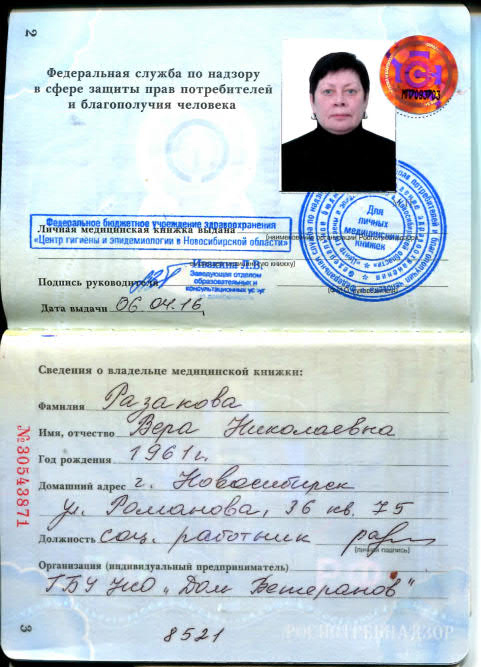 2
Федеральная служба по надзору
в сфере защиты прав потребителей
и благополучия человека
Личная медицинская книжка выдана
Федеральное бюджетное учреждение здравоохранения
«Центр гигиены и эпидемиологии в Новосибирской области»
Для
личных
медицинских
книжек
Подпись руководителя
Заведующая отделом
образовательных и
консультационных услуг
Дата выдачи 06.04.16
Сведения о владельце медицинской книжки:
Фамилия Разакова
Имя, отчество Вера Николаевна
Год рождения 1961г.
Домашний адрес г. Новосибирск
ул. Романова, 36 кв. 75
Должность соц. работник
(личная подпись)
Организация (индивидуальный предприниматель)
ГБУ НСО „Дом Ветеранов"
№30543871
3
8521
РОСПОТРЕБНАДЗОР